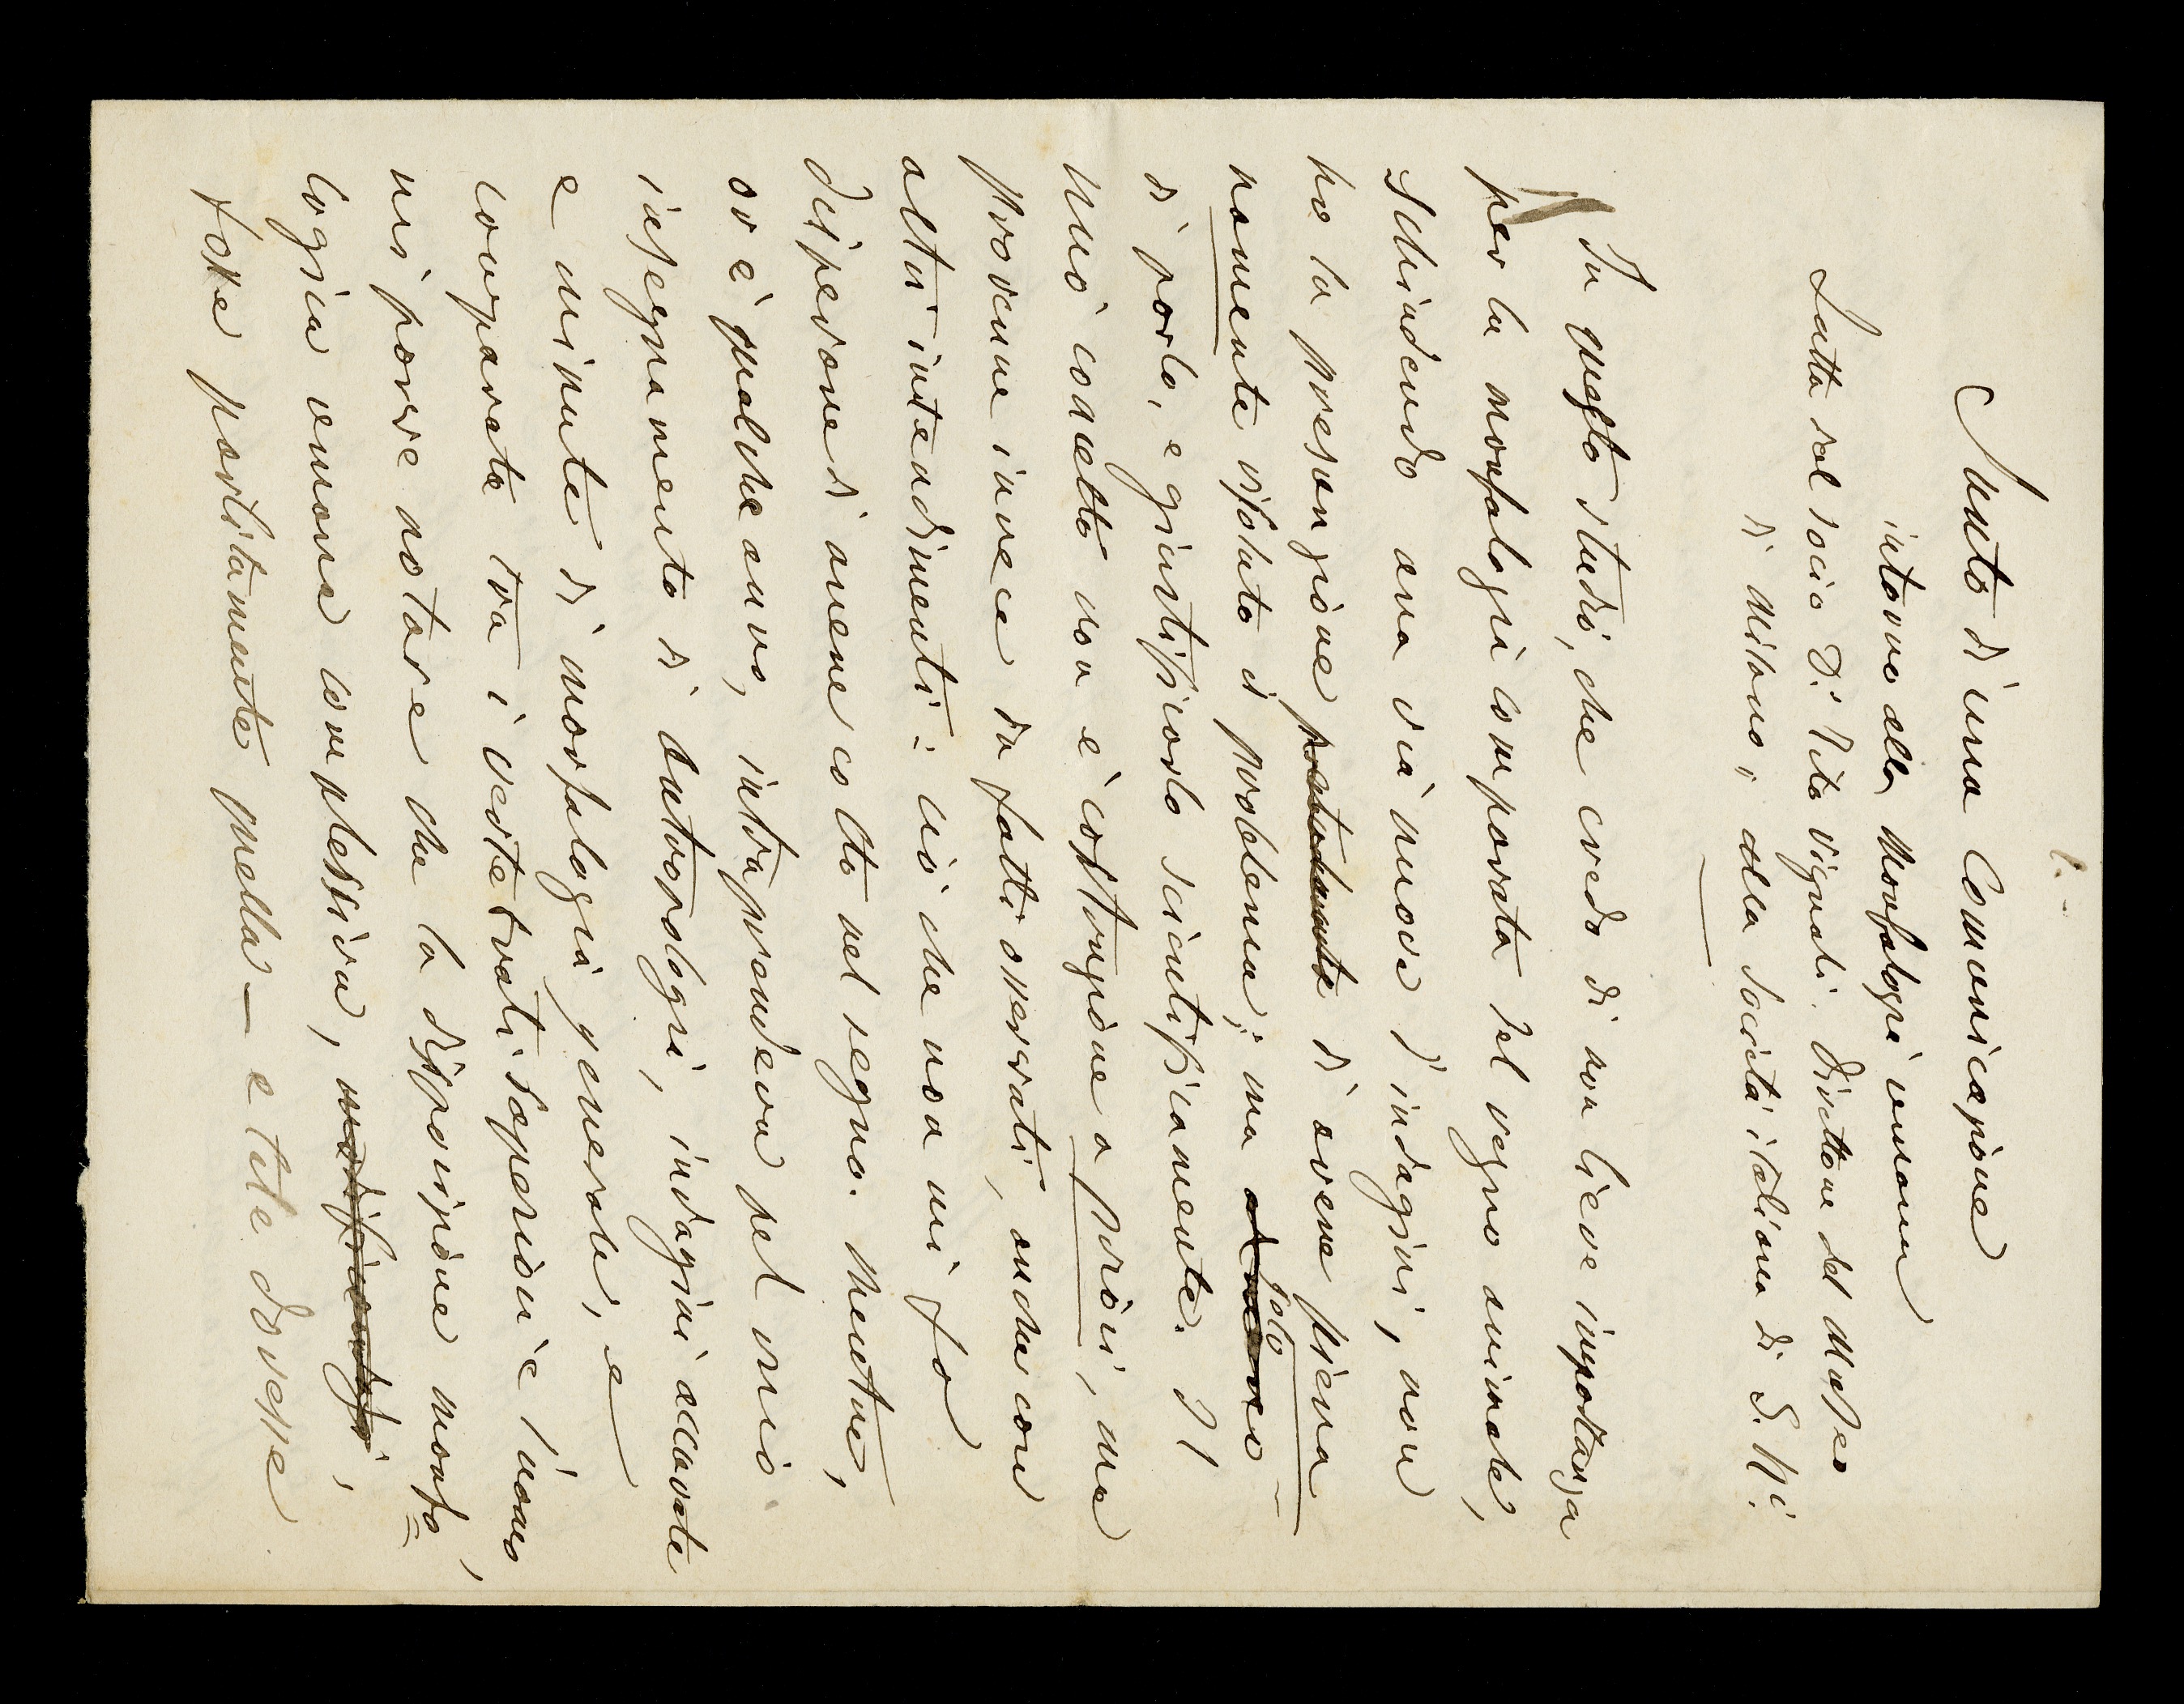 1.-
Sunto d'una Comunicazione
intorno alla Morfologia umana
fatta dal socio D.r Tito Vignoli. Direttore del Museo
di Milano, alla Società italiana di S. N:
In questo studio, che credo di non lieve importanza
per la morfologia comparata del regno animale,
schiudendo una via nuova d'indagini, non
ho la presunzione di avere piena
namente risoluto il problema; ma solo
di porlo, e giustificarlo scientificamente. Il
mio concetto non è costruzione a priori, ma
provenne invece da fatti osservati, anche con
altri intendimenti: ciò che non mi fa
disperare d'avere colto nel segno. Mentre,
or è qualche anno, intraprendeva pel mio
insegnamento di antropologia, indagini accurate
e minute di morfologia generale, e
comparata tra i vertebrati superiori e l'uomo,
mi parve notare che la disposizione morfo=
logica umana complessiva, modificandosi,
fosse partitamente quella — e tale dovesse